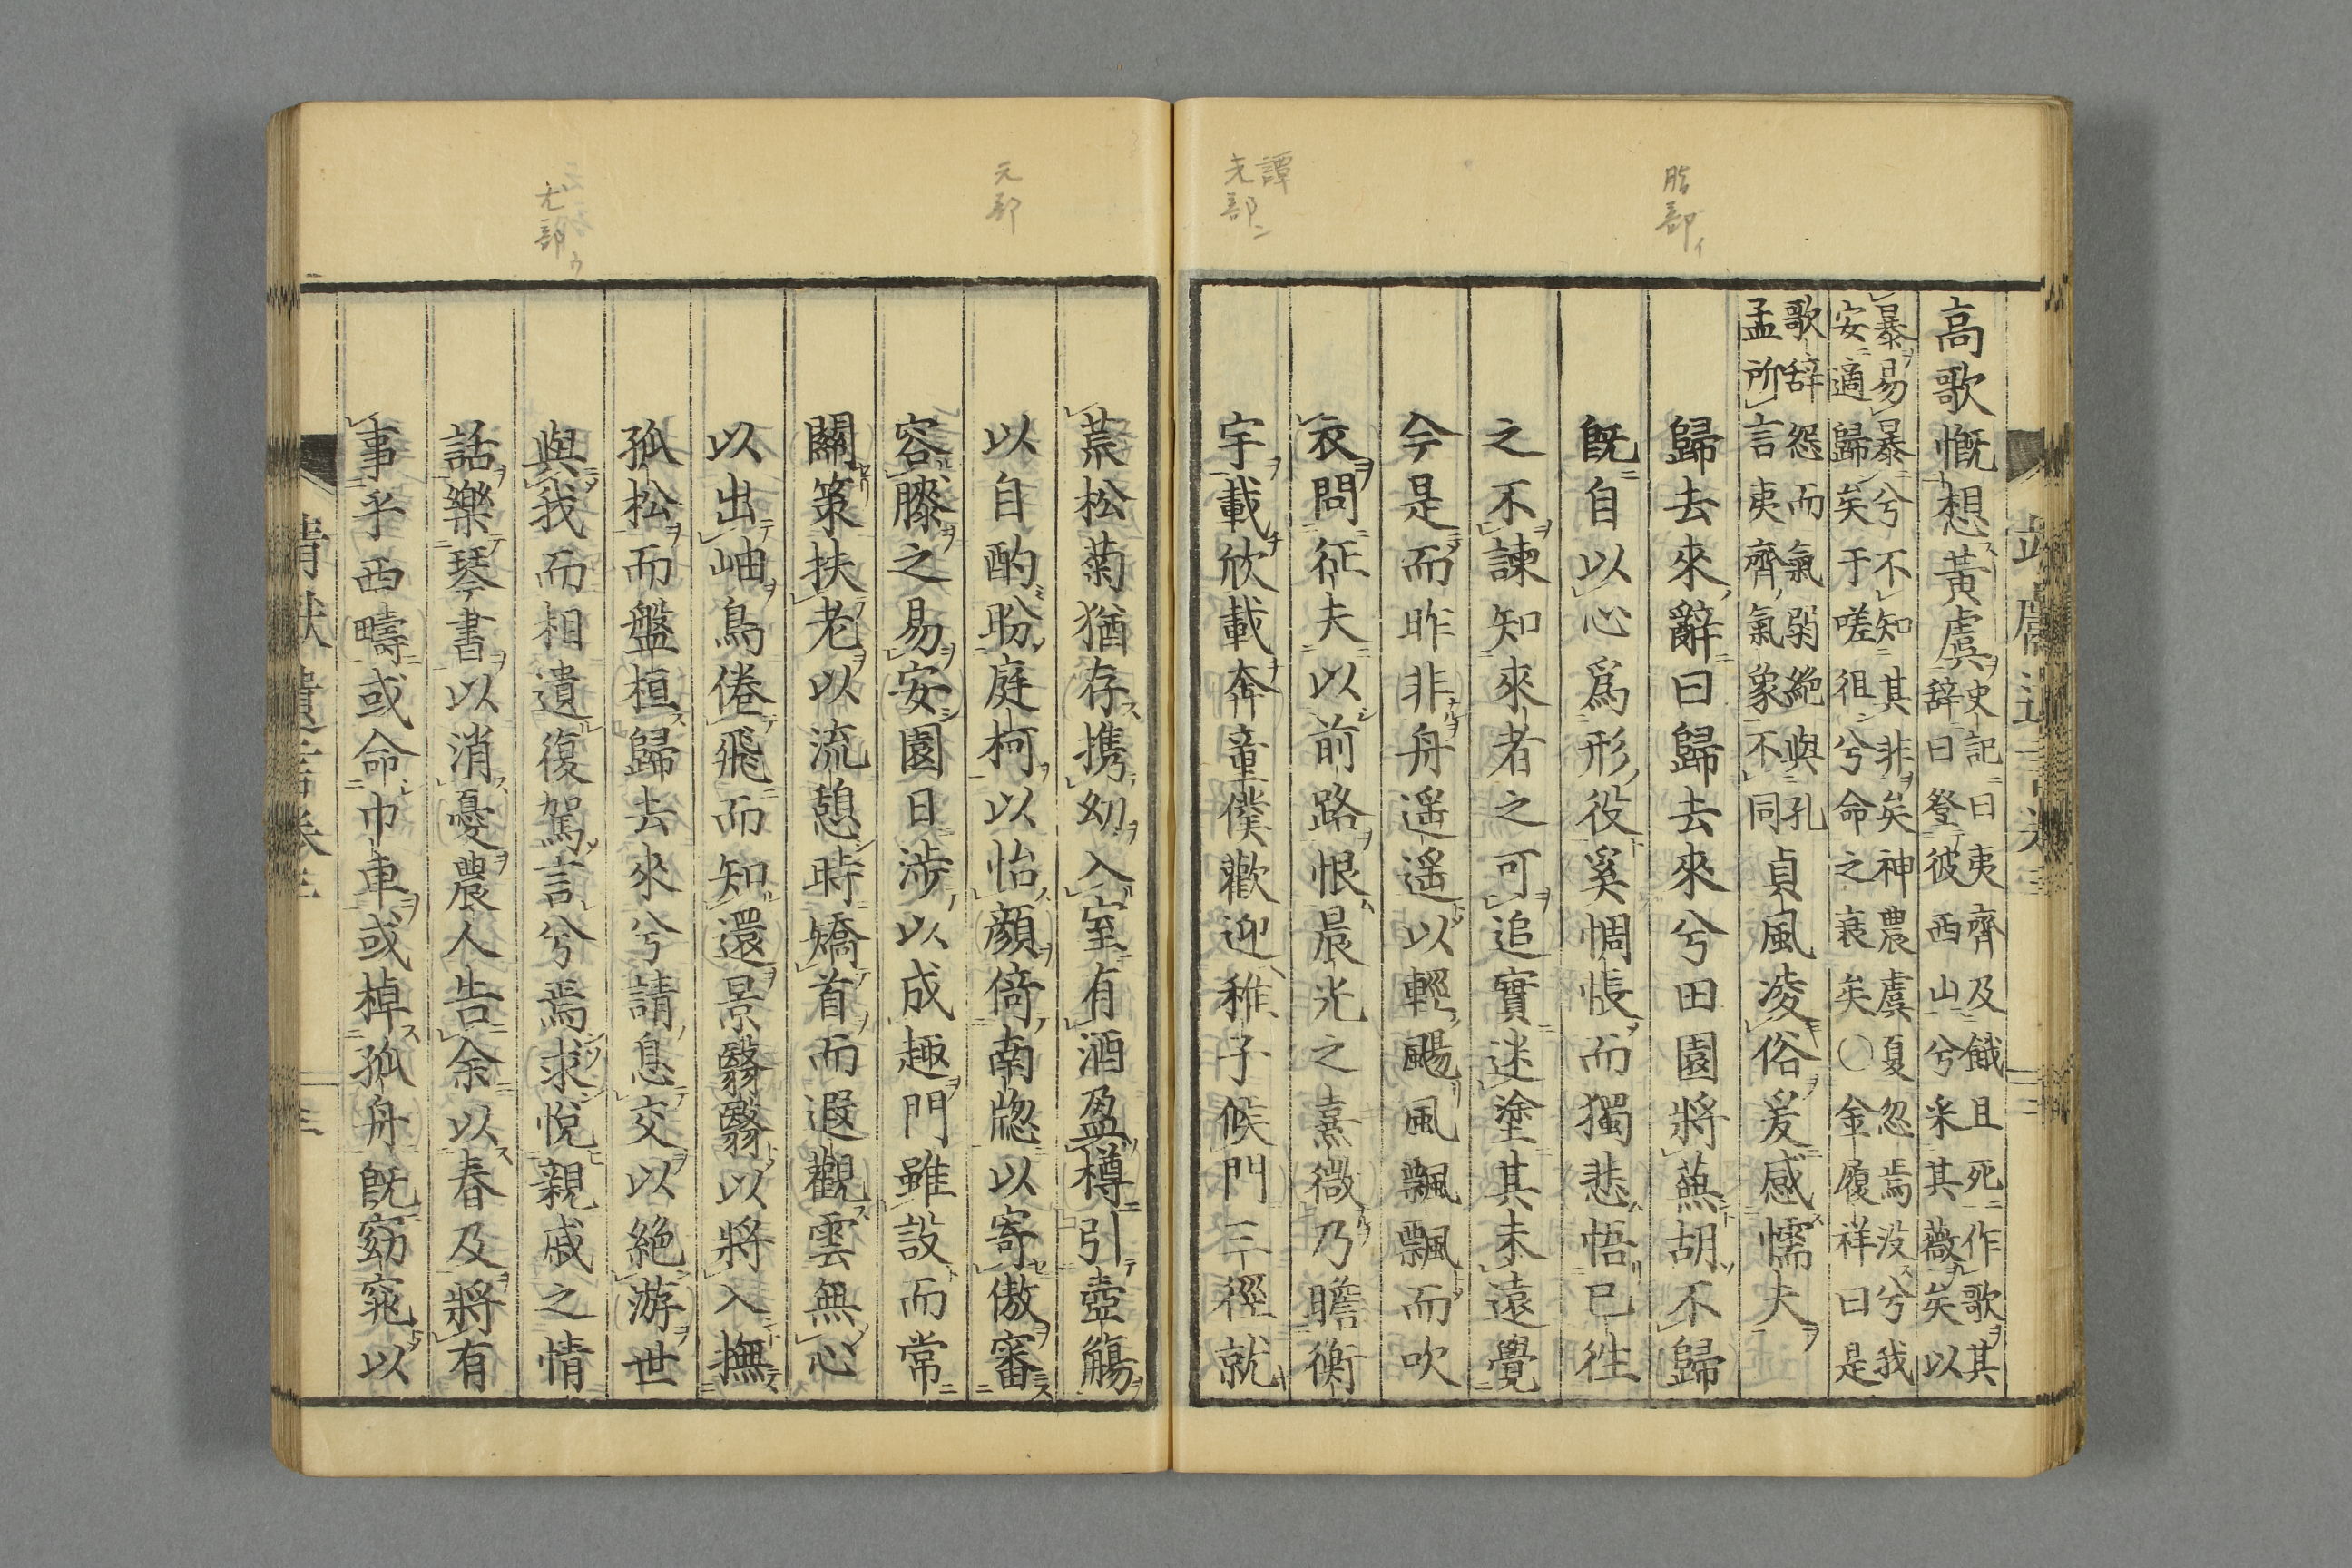 脂部イ
高歌慨想黃虞
史記曰夷齊及餓且死作歌其
辞曰登彼西山兮采其薇矣以
暴易暴兮不知其非矣神農虞夏忽焉没兮我
安適歸矣于嗟徂兮命之衰矣〇金履祥曰是
歌辞怨而氣弱絶與孔
孟所言夷齊氣象不同
貞風凌俗爰感懦夫
歸去來辭曰歸去來兮田園將蕪胡不歸
既自以心爲形役奚惆悵而獨悲悟已往
之不諫知來者之可追實迷塗其未遠覺
今是而昨非舟遥遥以輕颺風飄飄而吹
衣問征夫以前路恨晨光之熹微乃瞻衡
宇載欣載奔童僕歡迎稚子候門三徑就
元部
荒松菊猶存携幼入室有酒盈樽引壺觴
以自酌眄庭柯以怡顔倚南牕以寄傲審
容膝之易安園日渉以成趣門雖設而常
關策扶老以流憩時矯首而遐觀雲無心
以出岫鳥倦飛而知還景翳翳以將入撫
尤部ウ
孤松而盤桓歸去來兮請息交以絶游世
與我而相遺復駕言兮焉求悅親戚之情
話樂琴書以消憂農人告余以春及將有
事乎西疇或命巾車或棹孤舟既窈窕以
靖献遺言卷三